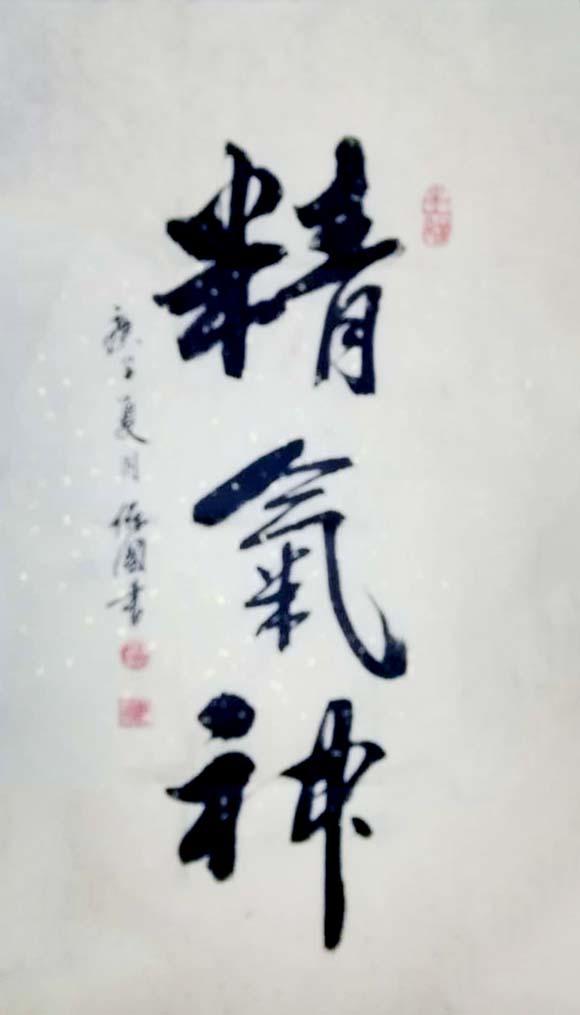 精氣神
庚子夏月保國書